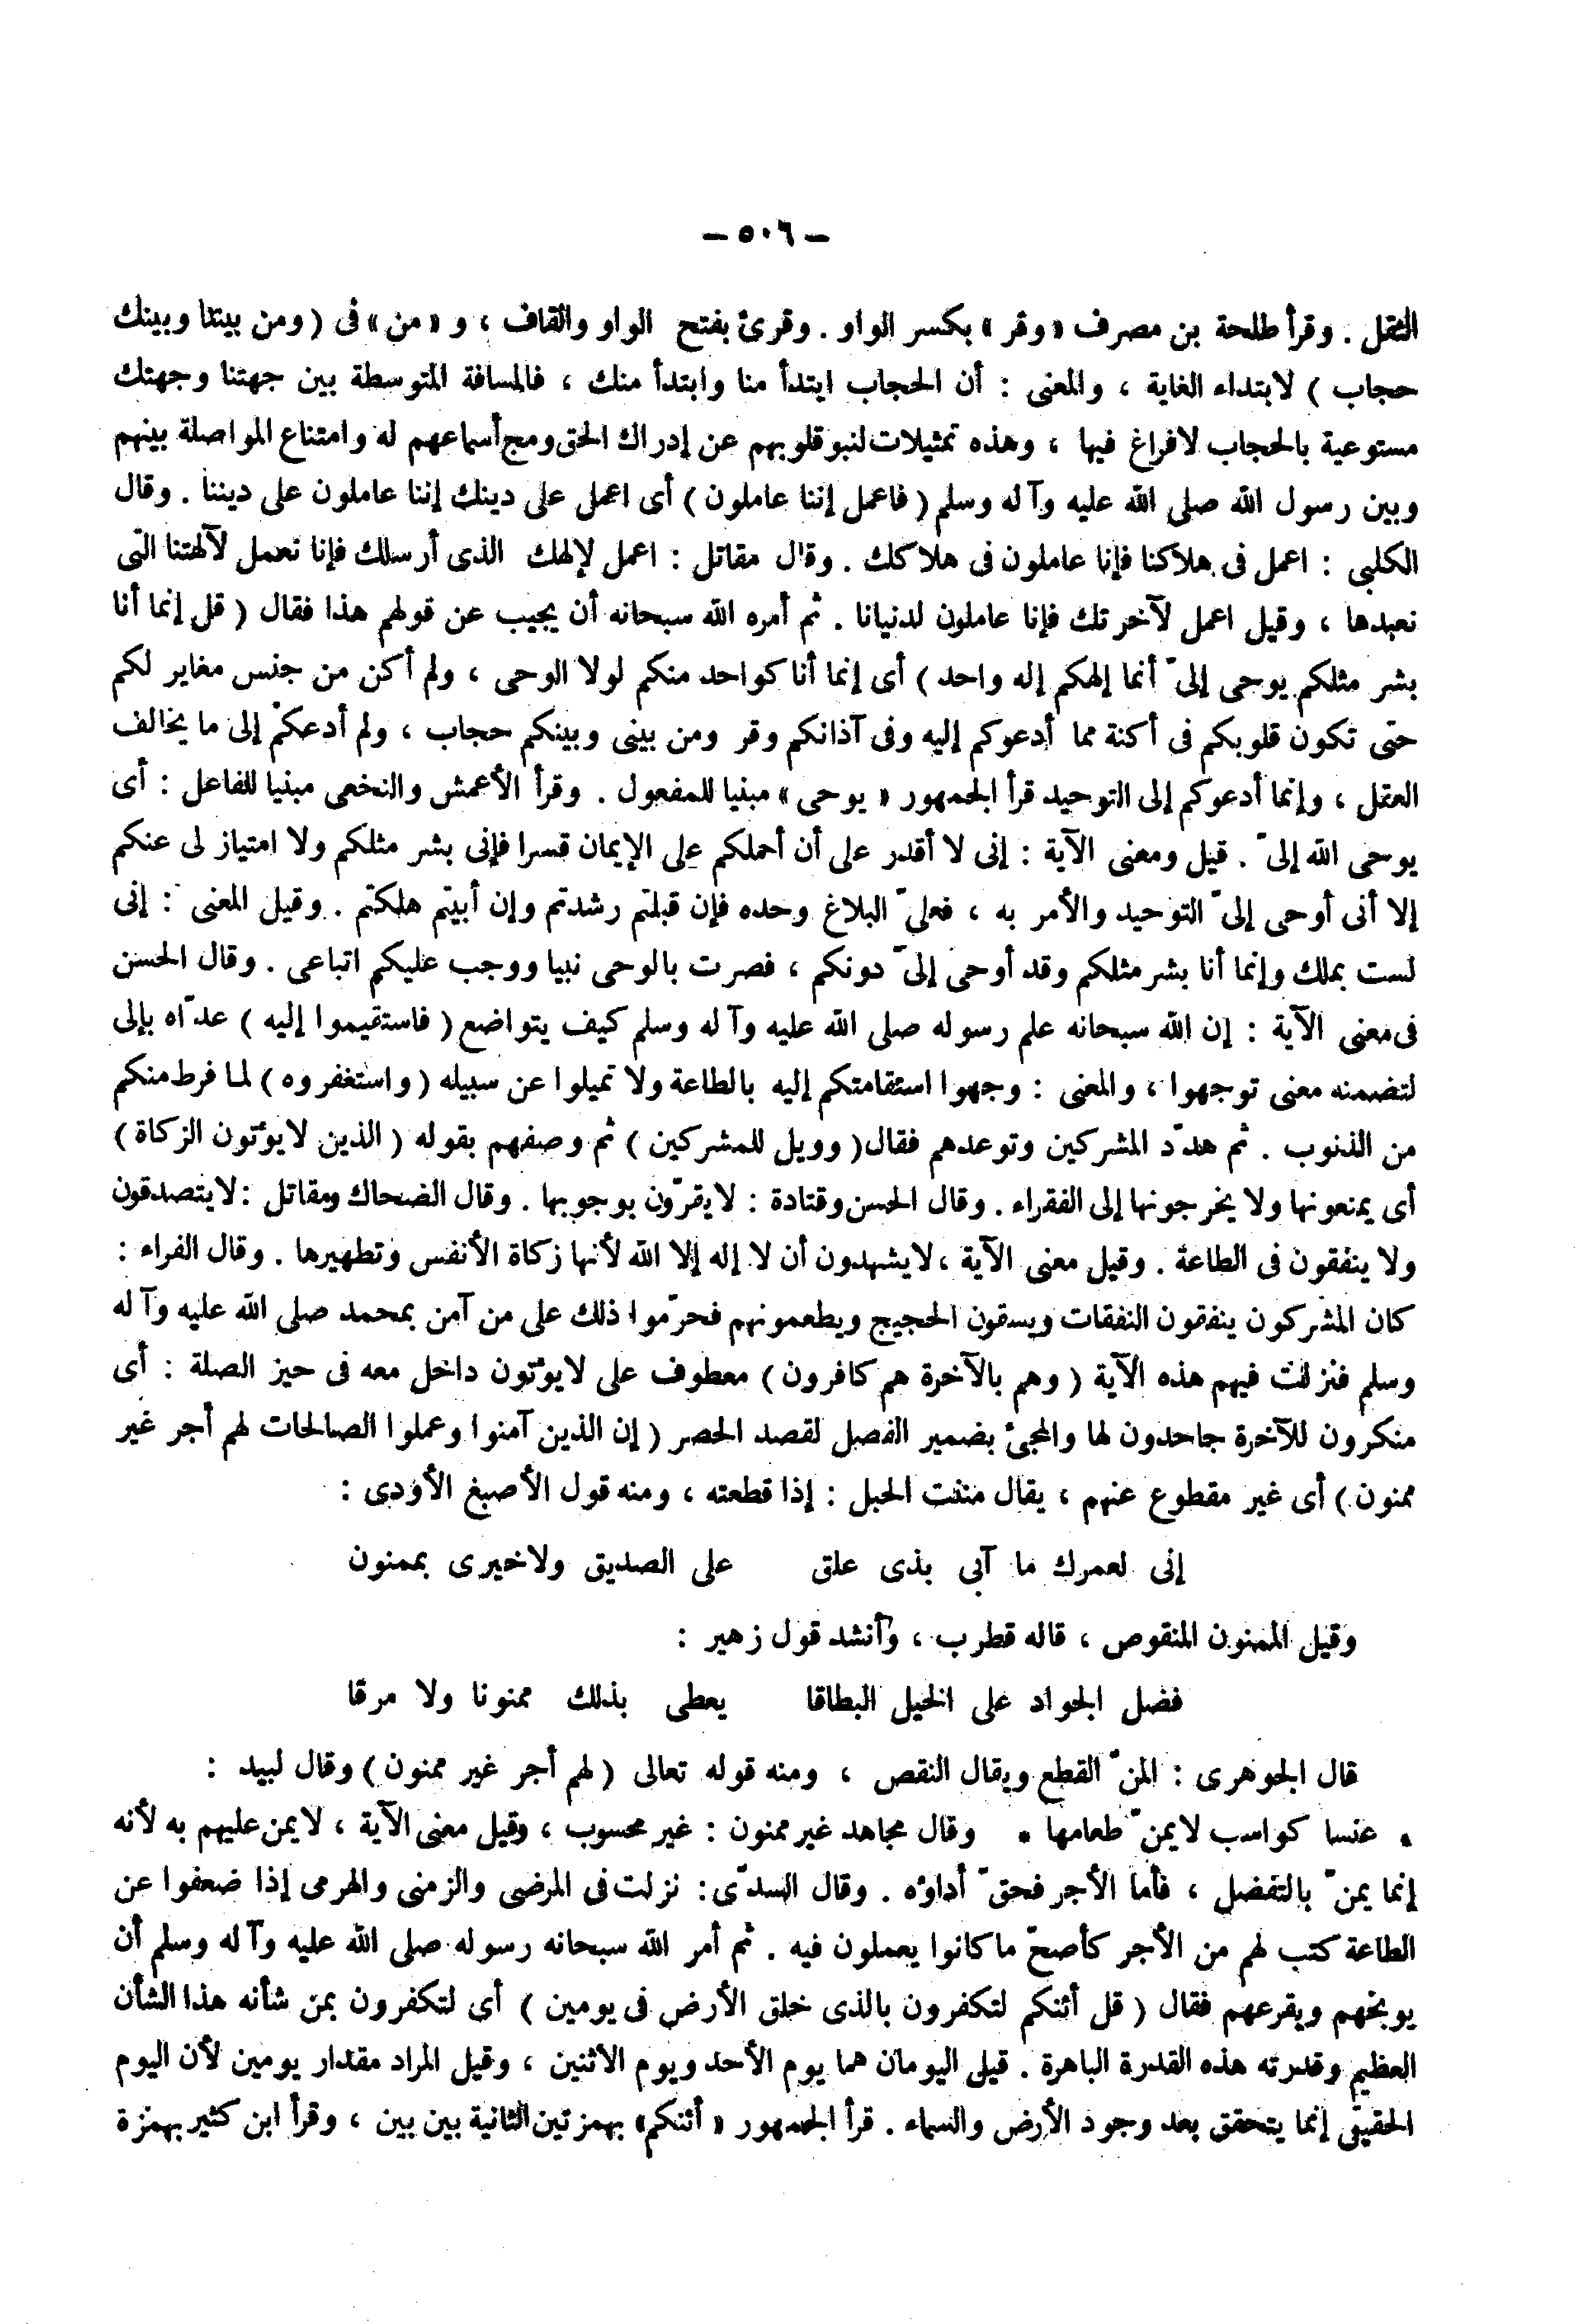 – ٥٠٦ –
الثقل . وقرأ طلحة بن مصرف « وقر » بكسر الواو . وقرئ بفتح الواو والقاف ، و « من » فى ( ومن بيننا وبينك
حجاب ) لابتداء الغاية ، والمعنى : أن الحجاب ابتدأ منا وابتدأ منك ، فالمسافة المتوسطة بين جهتنا وجهتك
مستوعبة بالحجاب لا فراغ فيها ، وهذه تمثيلات لنبو قلوبهم عن إدراك الحق ومج أسماعهم له وامتناع المواصلة بينهم
وبين رسول الله صلى الله عليه وآله وسلم ( فاعمل إننا عاملون ) أى اعمل على دينك إننا عاملون على ديننا . وقال
الكلبى : اعمل فى هلاكنا فإنا عاملون فى هلاكك . وقال مقاتل : اعمل لإلهك الذى أرسلك فإنا نعمل لآلهتنا التى
نعبدها ، وقيل اعمل لآخرتك فإنا عاملون لدنيانا . ثم أمره الله سبحانه أن يجيب عن قولهم هذا فقال ( قل إنما أنا
بشر مثلكم يوحى إلىّ أنما إلهكم إله واحد ) أى إنما أنا كواحد منكم لولا الوحى ، ولم أكن من جنس مغاير لكم
حتى تكون قلوبكم فى أكنة مما أدعوكم إليه وفى آذانكم وقر ومن بينى وبينكم حجاب ، ولم أدعكم إلى ما يخالف
العقل ، وإنما أدعوكم إلى التوحيد قرأ الجمهور « يوحى » مبنيا للمفعول . وقرأ الأعمش والنخعى مبنيا للفاعل : أى
يوحى الله إلىّ . قيل ومعنى الآية : إنى لا أقدر على أن أحملكم على الإيمان قسرا فإنى بشر مثلكم ولا امتياز لى عنكم
إلا أنى أوحى إلىّ التوحيد والأمر به ، فعلىّ البلاغ وحده فإن قبلتم رشدتم وإن أبيتم هلكتم . وقيل المعنى : إنى
لست بملك وإنما أنا بشر مثلكم وقد أوحى إلىّ دونكم ، فصرت بالوحى نبيا ووجب عليكم اتباعى . وقال الحسن
فى معنى الآية : إن الله سبحانه علم رسوله صلى الله عليه وآله وسلم كيف يتواضع ( فاستقيموا إليه ) عدّاه بإلى
لتضمنه معنى توجهوا ، والمعنى : وجهوا استقامتكم إليه بالطاعة ولا تميلوا عن سبيله ( واستغفروه ) لما فرط منكم
من الذنوب . ثم هدّد المشركين وتوعدهم فقال ( وويل للمشركين ) ثم وصفهم بقوله ( الذين لا يؤتون الزكاة )
أى يمنعونها ولا يخرجونها إلى الفقراء . وقال الحسن وقتادة : لا يقرّون بوجوبها . وقال الضحاك ومقاتل : لا يتصدقون
ولا ينفقون فى الطاعة . وقيل معنى الآية ، لا يشهدون أن لا إله إلا الله لأنها زكاة الأنفس وتطهيرها . وقال الفراء :
كان المشركون ينفقون النفقات ويسقون الحجيج ويطعمونهم فحرّموا ذلك على من آمن بمحمد صلى الله عليه وآله
وسلم فنزلت فيهم هذه الآية ( وهم بالآخرة هم كافرون ) معطوف على لا يؤتون داخل معه فى حيز الصلة : أى
منكرون للآخرة جاحدون لها والمجئ بضمير الفصل لقصد الحصر ( إن الذين آمنوا وعملوا الصالحات لهم أجر غير
ممنون ) أى غير مقطوع عنهم ، يقال مننت الحبل : إذا قطعته ، ومنه قول الأصبغ الأودى :
إنى لعمرك ما آبى بذى علق على الصديق ولا خيرى بممنون
وقيل الممنون المنقوص ، قاله قطرب ، وأنشد قول زهير :
فضل الجواد على الخيل البطاقا يعطى بذلك ممنونا ولا مرقا
قال الجوهرى : المنّ القطع ويقال النقص ، ومنه قوله تعالى ( لهم أجر غير ممنون ) وقال لبيد :
* عنسا كواسب لا يمنّ طعامها * وقال مجاهد غير ممنون : غير محسوب ، وقيل معنى الآية ، لا يمن عليهم به لأنه
إنما يمنّ بالتفضل ، فأما الأجر فحقّ أداؤه . وقال السدّى : نزلت فى المرضى والزمنى والهرمى إذا ضعفوا عن
الطاعة كتب لهم من الأجر كأصحّ ما كانوا يعملون فيه . ثم أمر الله سبحانه رسوله صلى الله عليه وآله وسلم أن
يوبخهم ويقرعهم فقال ( قل أئنكم لتكفرون بالذى خلق الأرض فى يومين ) أى لتكفرون بمن شأنه هذا الشأن
العظيم وقدرته هذه القدرة الباهرة . قيل اليومان هما يوم الأحد ويوم الاثنين ، وقيل المراد مقدار يومين لأن اليوم
الحقيقى إنما يتحقق بعد وجود الأرض والسماء . قرأ الجمهور « أئنكم » بهمزتين الثانية بين بين ، وقرأ ابن كثير بهمزة